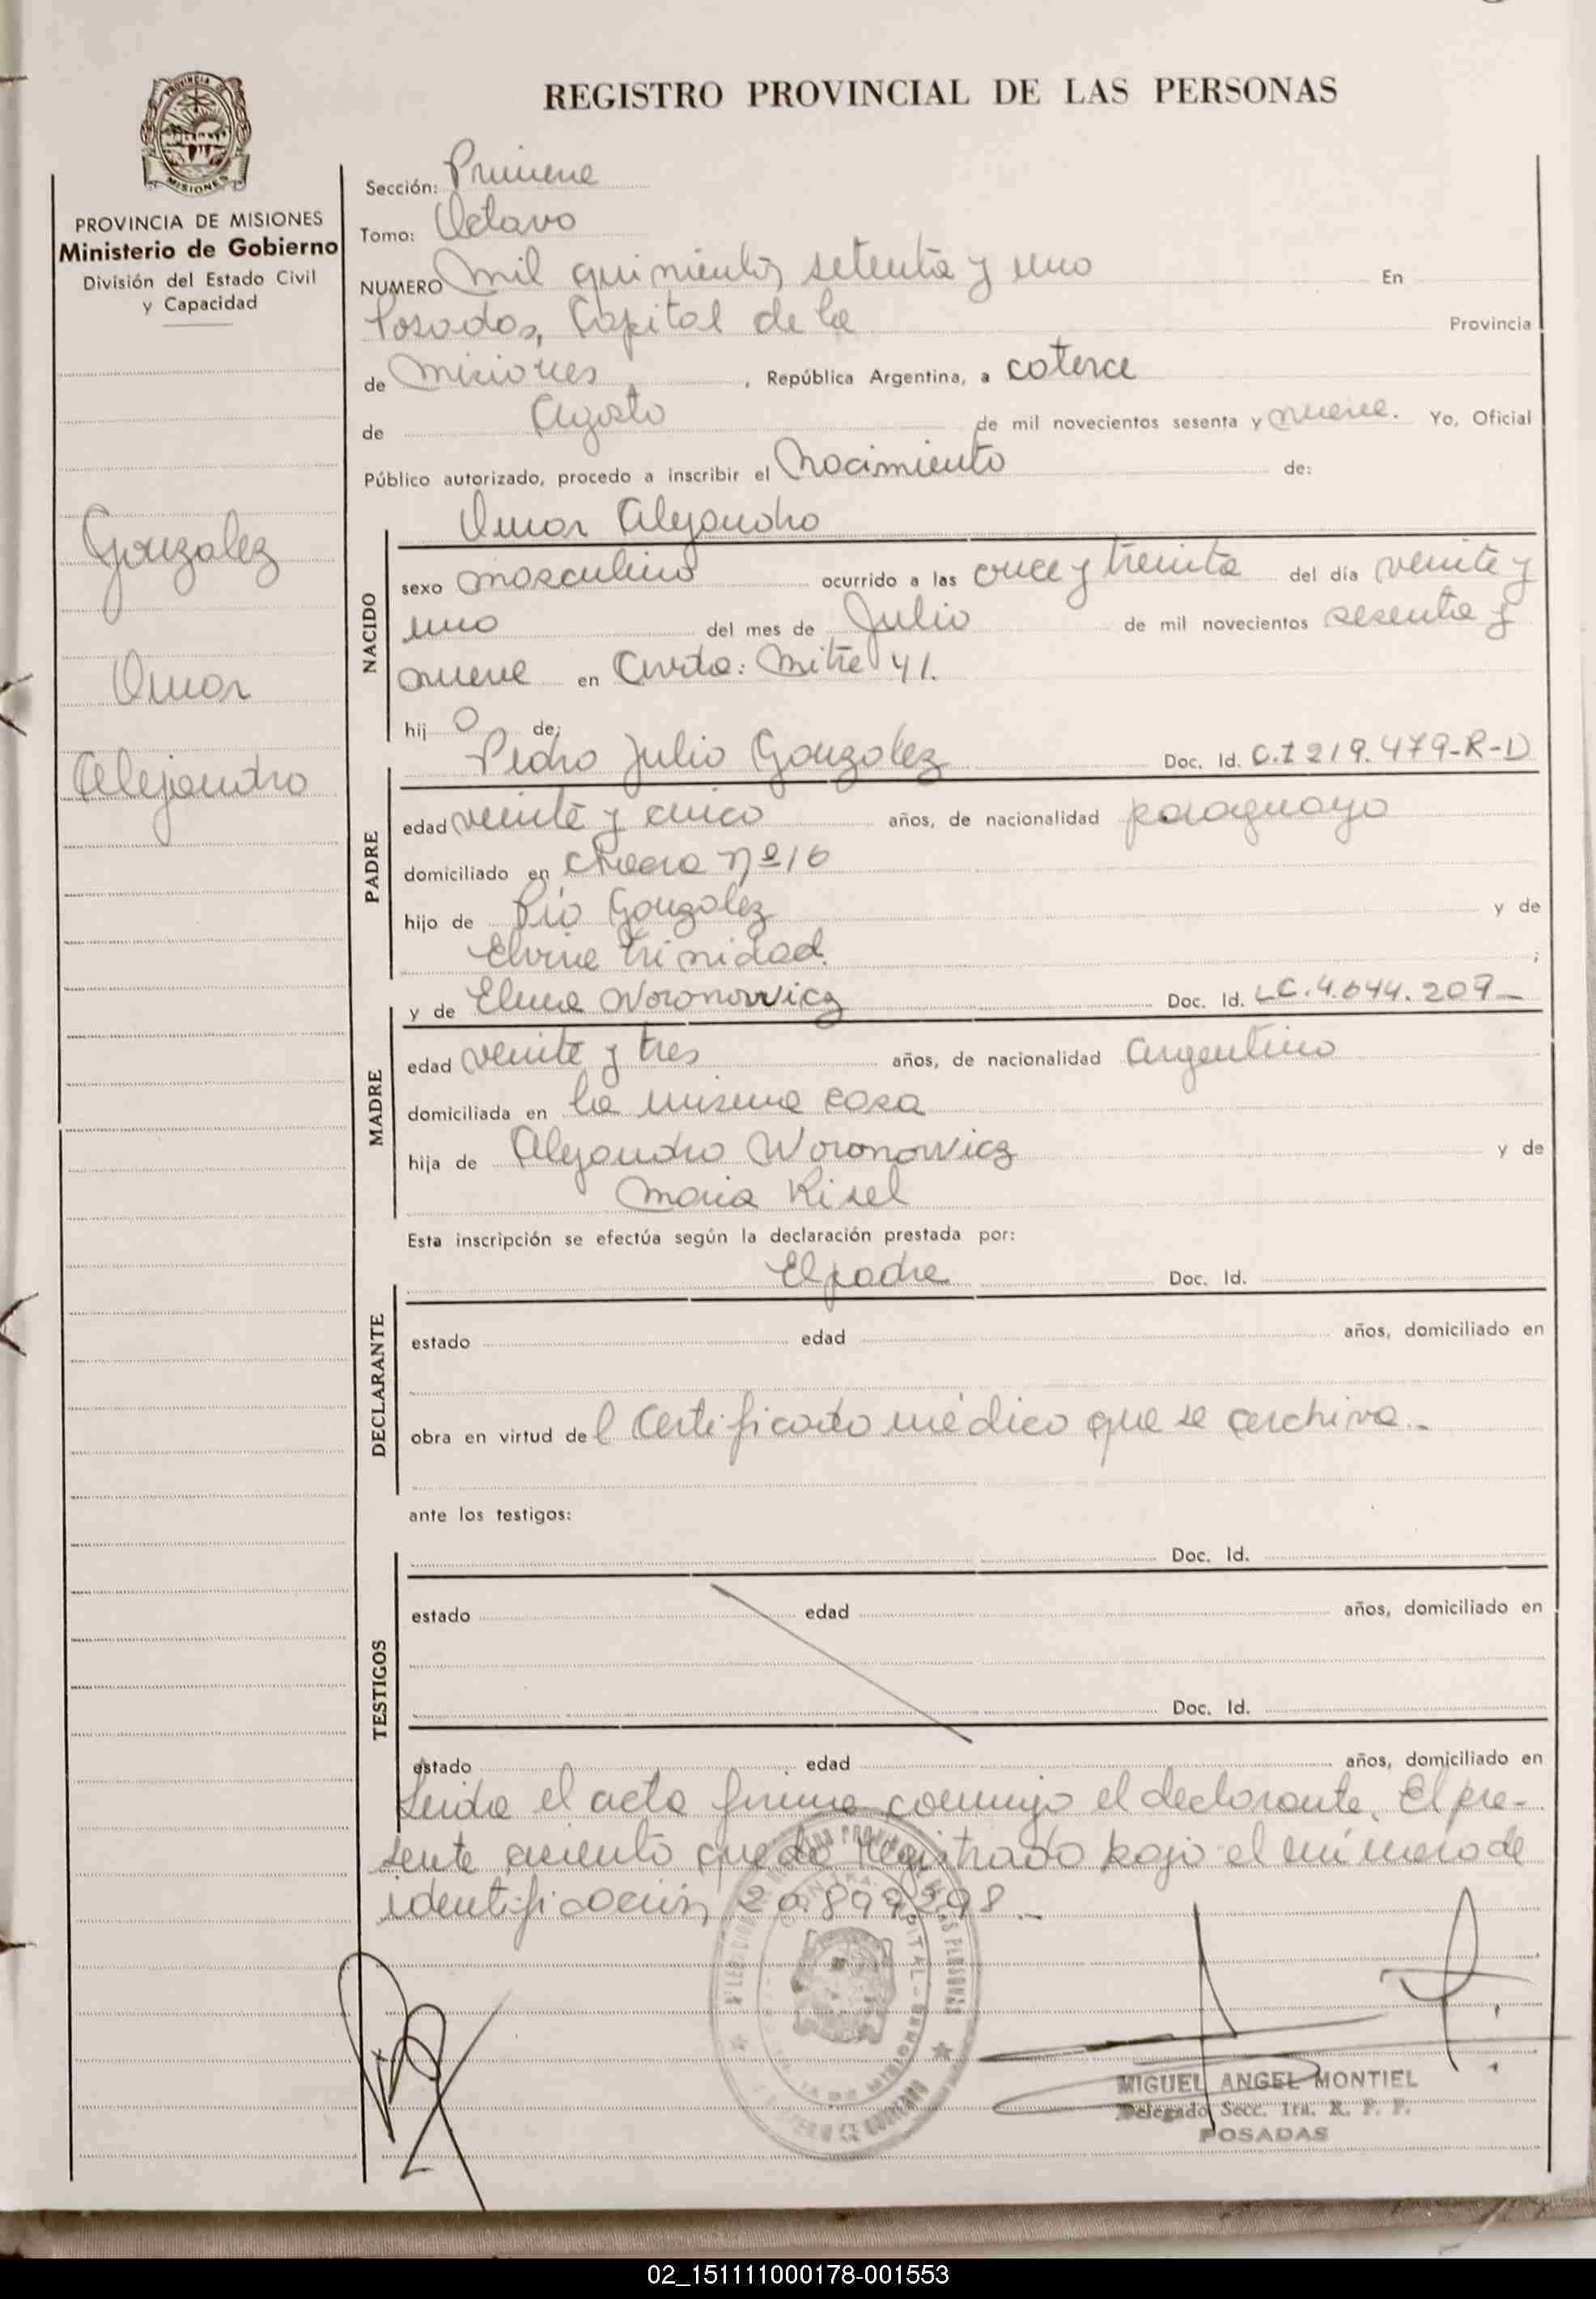 REGISTRO PROVINCIAL DE LAS PERSONAS
PROVINCIA DE MISIONES
Ministerio de Gobierno
División del Estado Civil
y Capacidad
Gonzalez
Omar
Alejandro
Sección: Primera
Tomo: Octavo
NUMERO Mil quinientos setenta y uno En
Posadas, Capital de la Provincia
de Misiones, República Argentina, a catorce
de Agosto de mil novecientos sesenta y nueve. Yo, Oficial
Público autorizado, procedo a inscribir el Nacimiento de:
Omar Alejandro
NACIDO
sexo masculino ocurrido a las once y treinta del día veinte y
uno del mes de Julio de mil novecientos sesenta y
nueve en Avda: Mitre 41.
hij o de:
Pedro Julio Gonzalez Doc. Id. C.I 219.479-R-D
PADRE
edad veinte y cinco años, de nacionalidad paraguaya
domiciliado en Chacra nº 16
hijo de Pío Gonzalez y de
Elvira Trinidad. ;
y de Elena Woronowicz Doc. Id. LC.4.644.209-
MADRE
edad veinte y tres años, de nacionalidad Argentina
domiciliada en la misma casa
hija de Alejandro Woronowicz y de
Maria Kisel
Esta inscripción se efectúa según la declaración prestada por:
El padre Doc. Id.
DECLARANTE
estado edad años, domiciliado en
obra en virtud del Certificado médico que se archiva.-
ante los testigos:
Doc. Id.
TESTIGOS
estado edad años, domiciliado en
Doc. Id.
estado edad años, domiciliado en
Leida el acta firma conmigo el declarante. El pre-
sente asiento queda registrado bajo el número de
identificación, 20.899.298.-
MIGUEL ANGEL MONTIEL
Delegado Secc. 1ra. R. P. P.
POSADAS
02_151111000178-001553